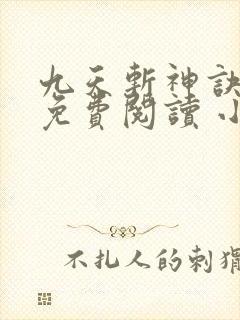 九天斬神訣
免費閱讀 小
不扎人的刺猬